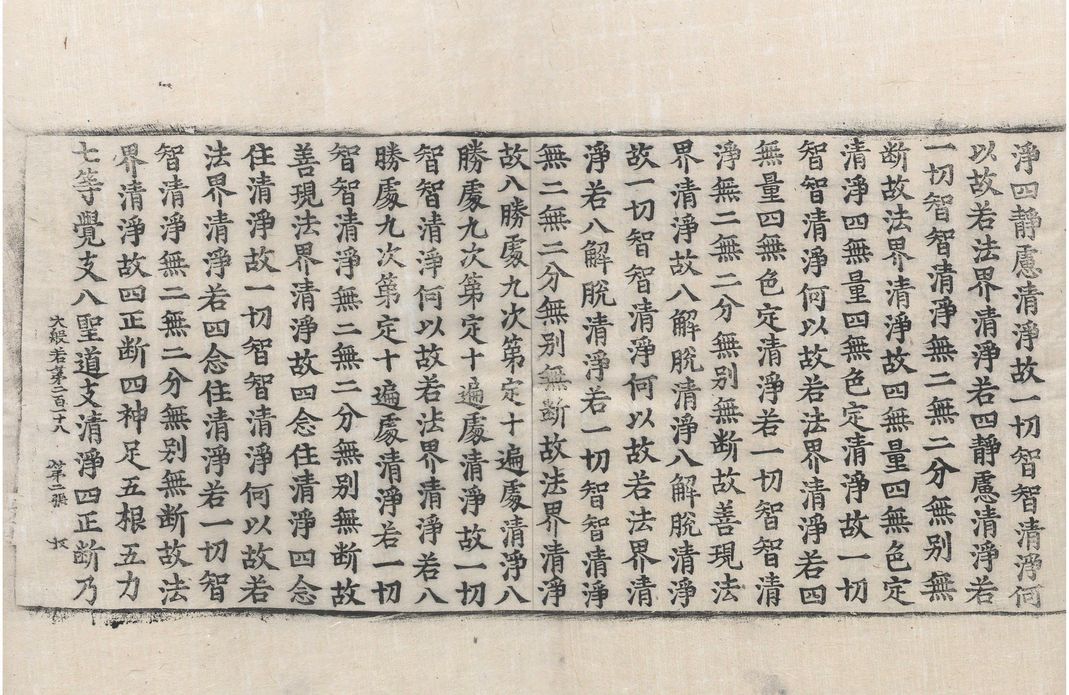 淨四靜慮清淨故一切智智清淨何
以故若法界清淨若四靜慮清淨若
一切智智清淨無二無二分無别無
断故法界清淨故四無量四無色定
清淨四無量四無色定清淨故一切
智智清淨何以故若法界清淨若四
無量四無色定清淨若一切智智清
淨無二無二分無别無断故善現法
界清淨故八解脫清淨八解脫清淨
故一切智智清淨何以故若法界清
淨若八解脫清淨若一切智智清淨
無二無二分無别無断故法界清淨
故八勝處九次第定十遍處清淨八
勝處九次第定十遍處清淨故一切
智智清淨何以故若法界清淨若八
勝處九次第定十遍處清淨若一切
智智清淨無二無二分無别無断故
善現法界清淨故四念住清淨四念
住清淨故一切智智清淨何以故若
法界清淨若四念住清淨若一切智
智清淨無二無二分無别無断故法
界清淨故四正断四神足五根五力
七等覺支八聖道支清淨四正断乃
大般若第二百一十八 第二張